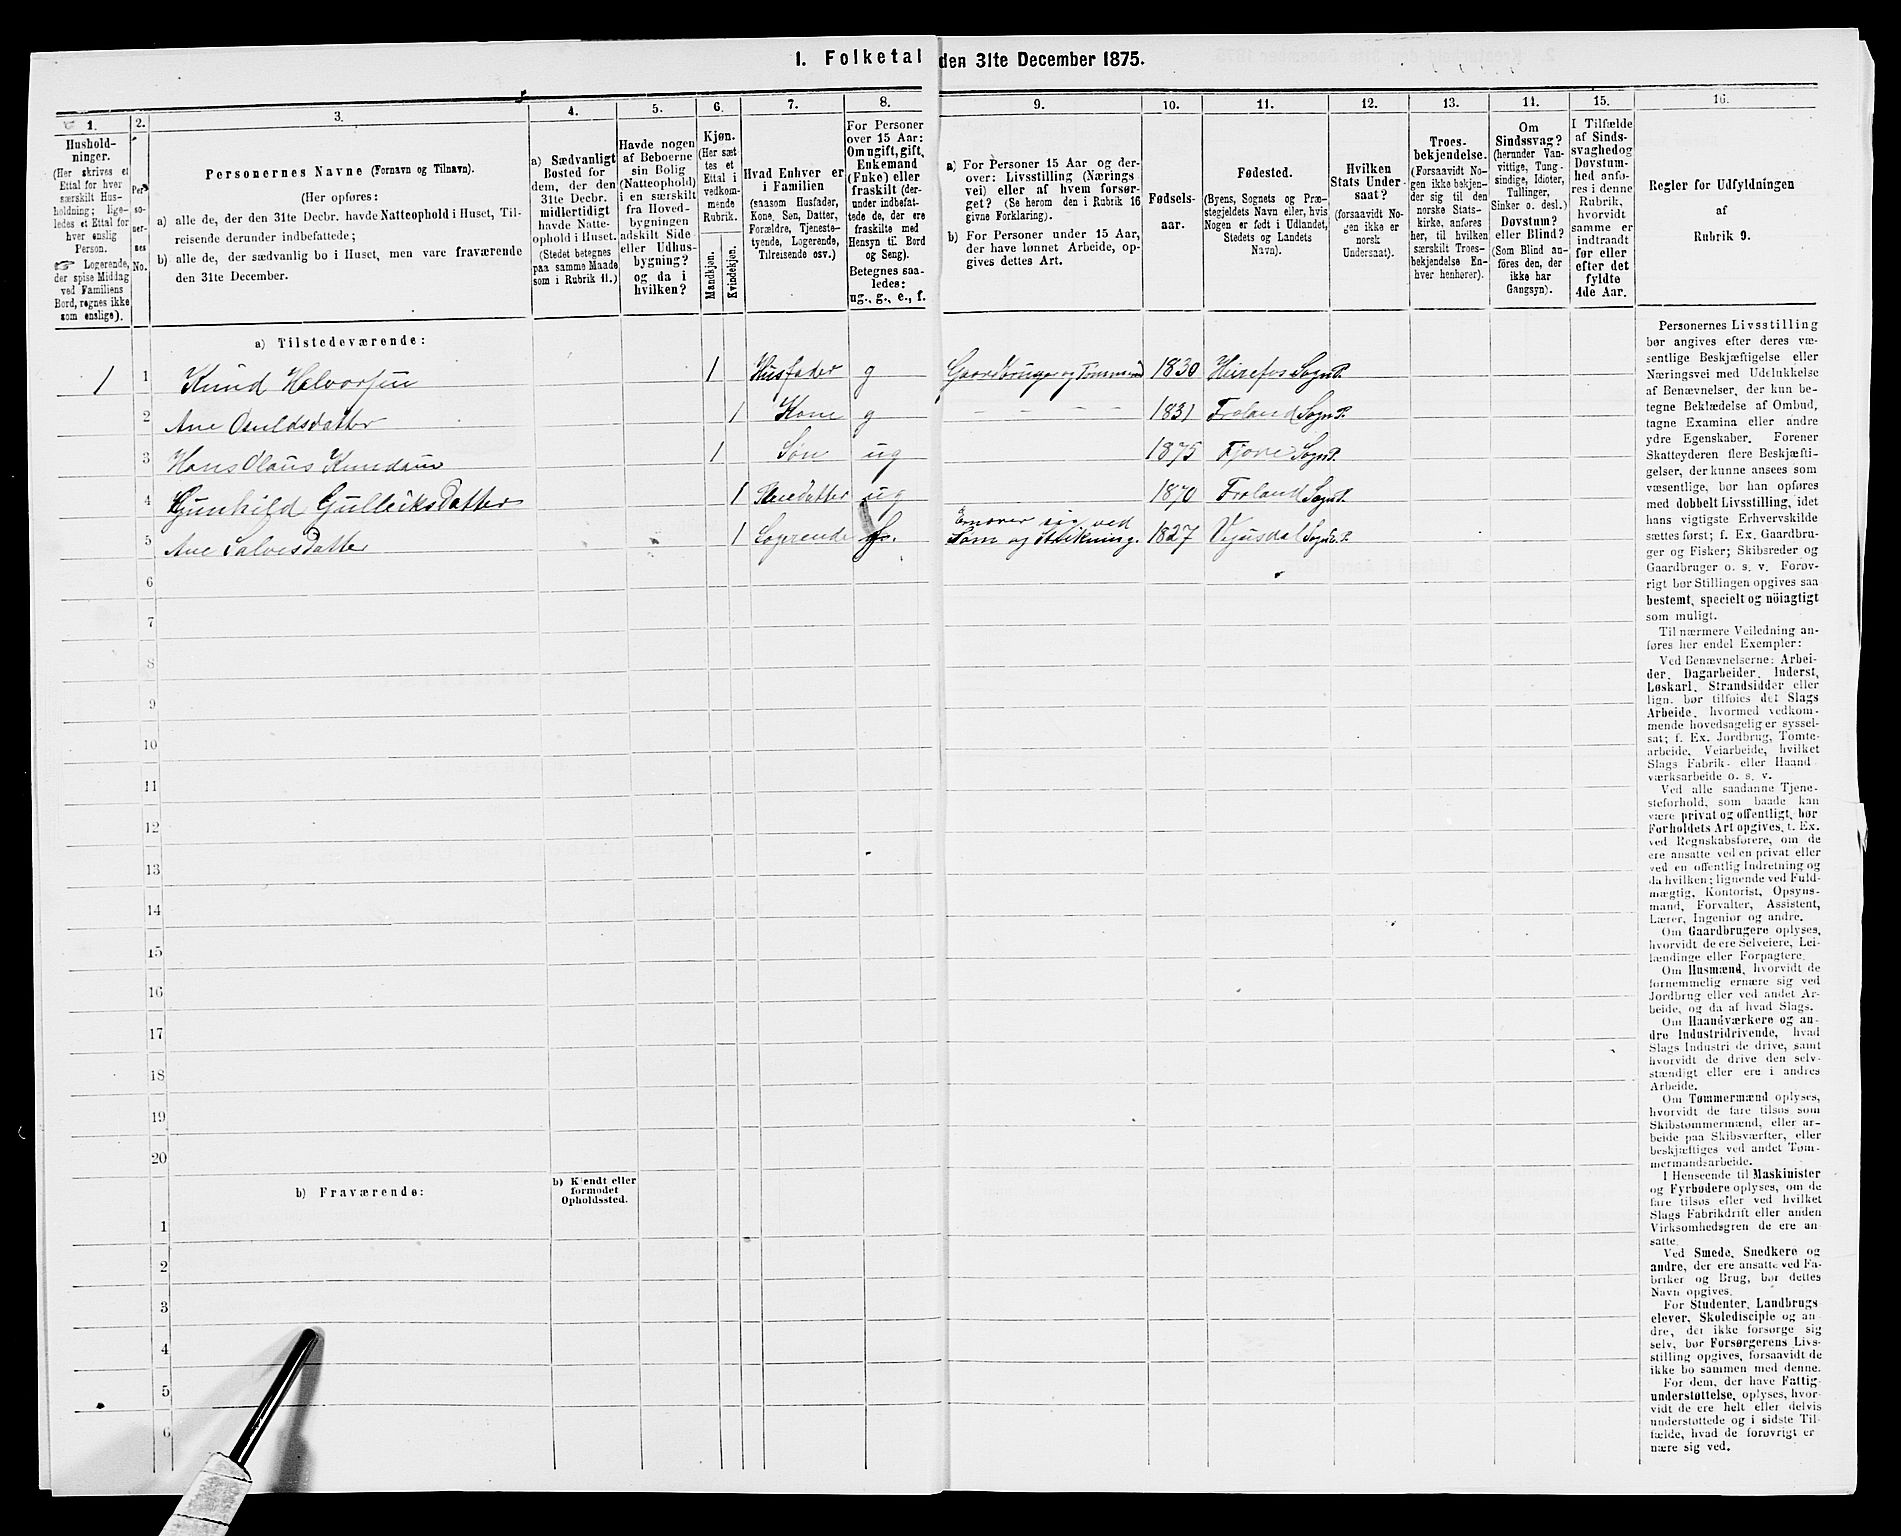 1. Folketal den 31te December 1875.
1.
2.
3.
4.
5.
6.
7.
8.
9.
10.
11.
12.
13.
14.
15.
16.
Hushold-
ninger.
(Her skrives et
Ettal for hver
særskilt Hus-
holdning; lige-
ledes et Ettal for
hver enslig
Person.
Logerende,
der spise Middag
ved Familiens
Bord, regnes ikke
som enslige).
Per-
so-
ner-
nes
No.
Personernes Navne (Fornavn og Tilnavn).
(Her opføres:
a) alle de, der den 31te Decbr. havde Natteophold i Huset, Til-
reisende derunder indbefattede;
b) alle de, der sædvanlig bo i Huset, men vare fraværende
den 31te December.
a) Sædvanligt
Bosted for
dem, der den
31te Decbr.
midlertidigt
havde Natte-
ophold i Huset.
(Stedet betegnes
paa samme Maade
som i Rubrik 11.)
Havde nogen
af Beboerne
sin Bolig
(Natteophold)
i en særskilt
fra Hoved-
bygningen
adskilt Side
eller Udhus-
bygning?
og da i
hvilken?
Kjøn.
(Her sæt-
tes et
Ettal i
vedkom-
mende
Rubrik.
Mandkjøn.
Kvindekjøn.
Hvad Enhver er
i Familien
(saasom Husfader,
Kone, Søn, Datter,
Forældre, Tjeneste-
tyende, Logerende,
Tilreisende osv.)
For Personer
over 15 Aar:
Om ugift, gift,
Enkemand
(Enke) eller
fraskilt (der-
under indbefat-
tede de, der ere
fraskilte med
Hensyn til Bord
og Seng).
Betegnes saa-
ledes:
ug., g., e., f.
a) For Personer 15 Aar og der-
over: Livsstilling (Nærings-
vei) eller af hvem forsør-
get? (Se herom den i Rubrik 16
givne Forklaring).
b) For Personer under 15 Aar,
der have lønnet Arbeide, op-
gives dettes Art.
Fødsels-
aar.
Fødested.
(Byens, Sognets og Præ-
stegjeldets Navn eller, hvis
Nogen er født i Udlandet,
Stedets og Landets
Navn).
Hvilken
Stats Under-
saat?
(forsaavidt No-
gen ikke er
norsk
Undersaat).
Troes-
bekjendelse.
(Forsaavidt No-
gen ikke bekjen-
der sig til den
norske Stats-
kirke, anføres
her, til hvilken
særskilt Troes-
bekjendelse En-
hver henhører).
Om
Sindssvag?
(herunder Van-
vittige, Tung-
sindige, Idioter,
Tullinger,
Sinker o. desl.)
Døvstum?
eller Blind?
(Som Blind an-
føres den, der
ikke har
Gangsyn).
I Tilfælde
af Sinds-
svaghed og
Døvstum-
hed anfø-
res i denne
Rubrik,
hvorvidt
samme er
indtraadt
før eller
efter det
fyldte
4de Aar.
Regler for Udfyldningen
af
Rubrik 9.
a) Tilstedeværende:
1 1 Knud Halvorsen 1 Husfader g Gaardbruger og Tømmermand 1830 Hirefos Sogn P.
2 Ane Osuldsdatter 1 Kone g - - - - 1831 Froland Sogn P.
3 Hans Olaus Knudsen 1 Søn ug 1875 Fjære Sogn P.
4 Gunhild Gulleiksdatter 1 Pleiedatter ug 1870 Froland Sogn P.
5 Ane Salvesdatter 1 Logerende f. Ernærer sig ved
Søm og Strikning. 1827 Vejusdal Sogn P.
6
7
8
9
10
11
12
13
14
15
16
17
18
19
20
b) Fraværende:
b) Kjendt eller
formodet
Opholdssted.
1
2
3
4
5
6
Personernes Livsstilling
bør angives efter deres væ-
sentlige Beskjæftigelse eller
Næringsvei med Udelukkelse
af Benævnelser, der kun be-
tegne Beklædelse af Ombud,
tagne Examina eller andre
ydre Egenskaber. Forener
Skatteyderen flere Beskjæfti-
gelser, der kunne ansees som
væsentlige, bør han opføres
med dobbelt Livsstilling, idet
hans vigtigste Erhvervskilde
sættes først; f. Ex. Gaardbru-
ger og Fisker; Skibsreder og
Gaardbruger o. s. v. Forøv-
rigt bør Stillingen opgives saa
bestemt, specielt og nöiagtigt
som muligt.
Til nærmere Veiledning an-
føres her endel Exempler:
Ved Benævnelserne: Arbei-
der, Dagarbeider, Inderst,
Løskarl, Strandsidder eller
lign. bør tilføies det Slags
Arbeide, hvormed vedkom-
mende hovedsagelig er syssel-
sat; f. Ex. Jordbrug, Tomte-
arbeide, Veiarbeide, hvilket
Slags Fabrik- eller Haand-
værksarbeide o. s. v.
Ved alle saadanne Tjene-
steforhold, som baade kan
være privat og offentligt, bør
Forholdets Art opgives, t. Ex.
ved Regnskabsførere, om de
ere ansatte ved en privat eller
ved en offentlig Indretning og
da hvilken; lignende ved Fuld-
mægtig, Kontorist, Opsyns-
mand, Forvalter, Assistent,
Lærer, Ingeniør og andre.
Om Gaardbrugere oplyses,
hvorvidt de ere Selveiere, Lei-
lændinge eller Forpagtere.
Om Husmænd, hvorvidt de
fornemmelig ernære sig ved
Jordbrug eller ved andet Ar-
beide, og da af hvad Slags.
Om Haandværkere og an-
dre Industridrivende, hvad
Slags Industri de drive, samt
hvorvidt de drive den selv-
stændigt eller ere i andres
Arbeide.
Om Tømmermænd oplyses,
hvorvidt de fare tilsøs som
Skibstømmermænd, eller ar-
beide paa Skibsværfter, eller
beskjæftiges ved andet Tøm-
mermandsarbeide.
I Henseende til Maskinister
og Fyrbødere oplyses, om de
fare tilsøs eller ved hvilket
Slags Fabrikdrift eller anden
Virksomhedsgren de ere an-
satte.
Ved Smede, Snedkere og
andre, der ere ansatte ved Fa-
briker og Brug, bør dettes
Navn opgives.
For Studenter, Landbrugs-
elever, Skoledisciple og an-
dre, der ikke forsørge sig
selv, bør Forsørgerens Livs-
stilling opgives, forsaavidt de
ikke bo sammen med denne.
For dem, der have Fattig-
understøttelse, oplyses, hvor-
vidt de ere helt eller delvis
understøttede og i sidste Til-
fælde, hvad de forøvrigt er-
nære sig ved.